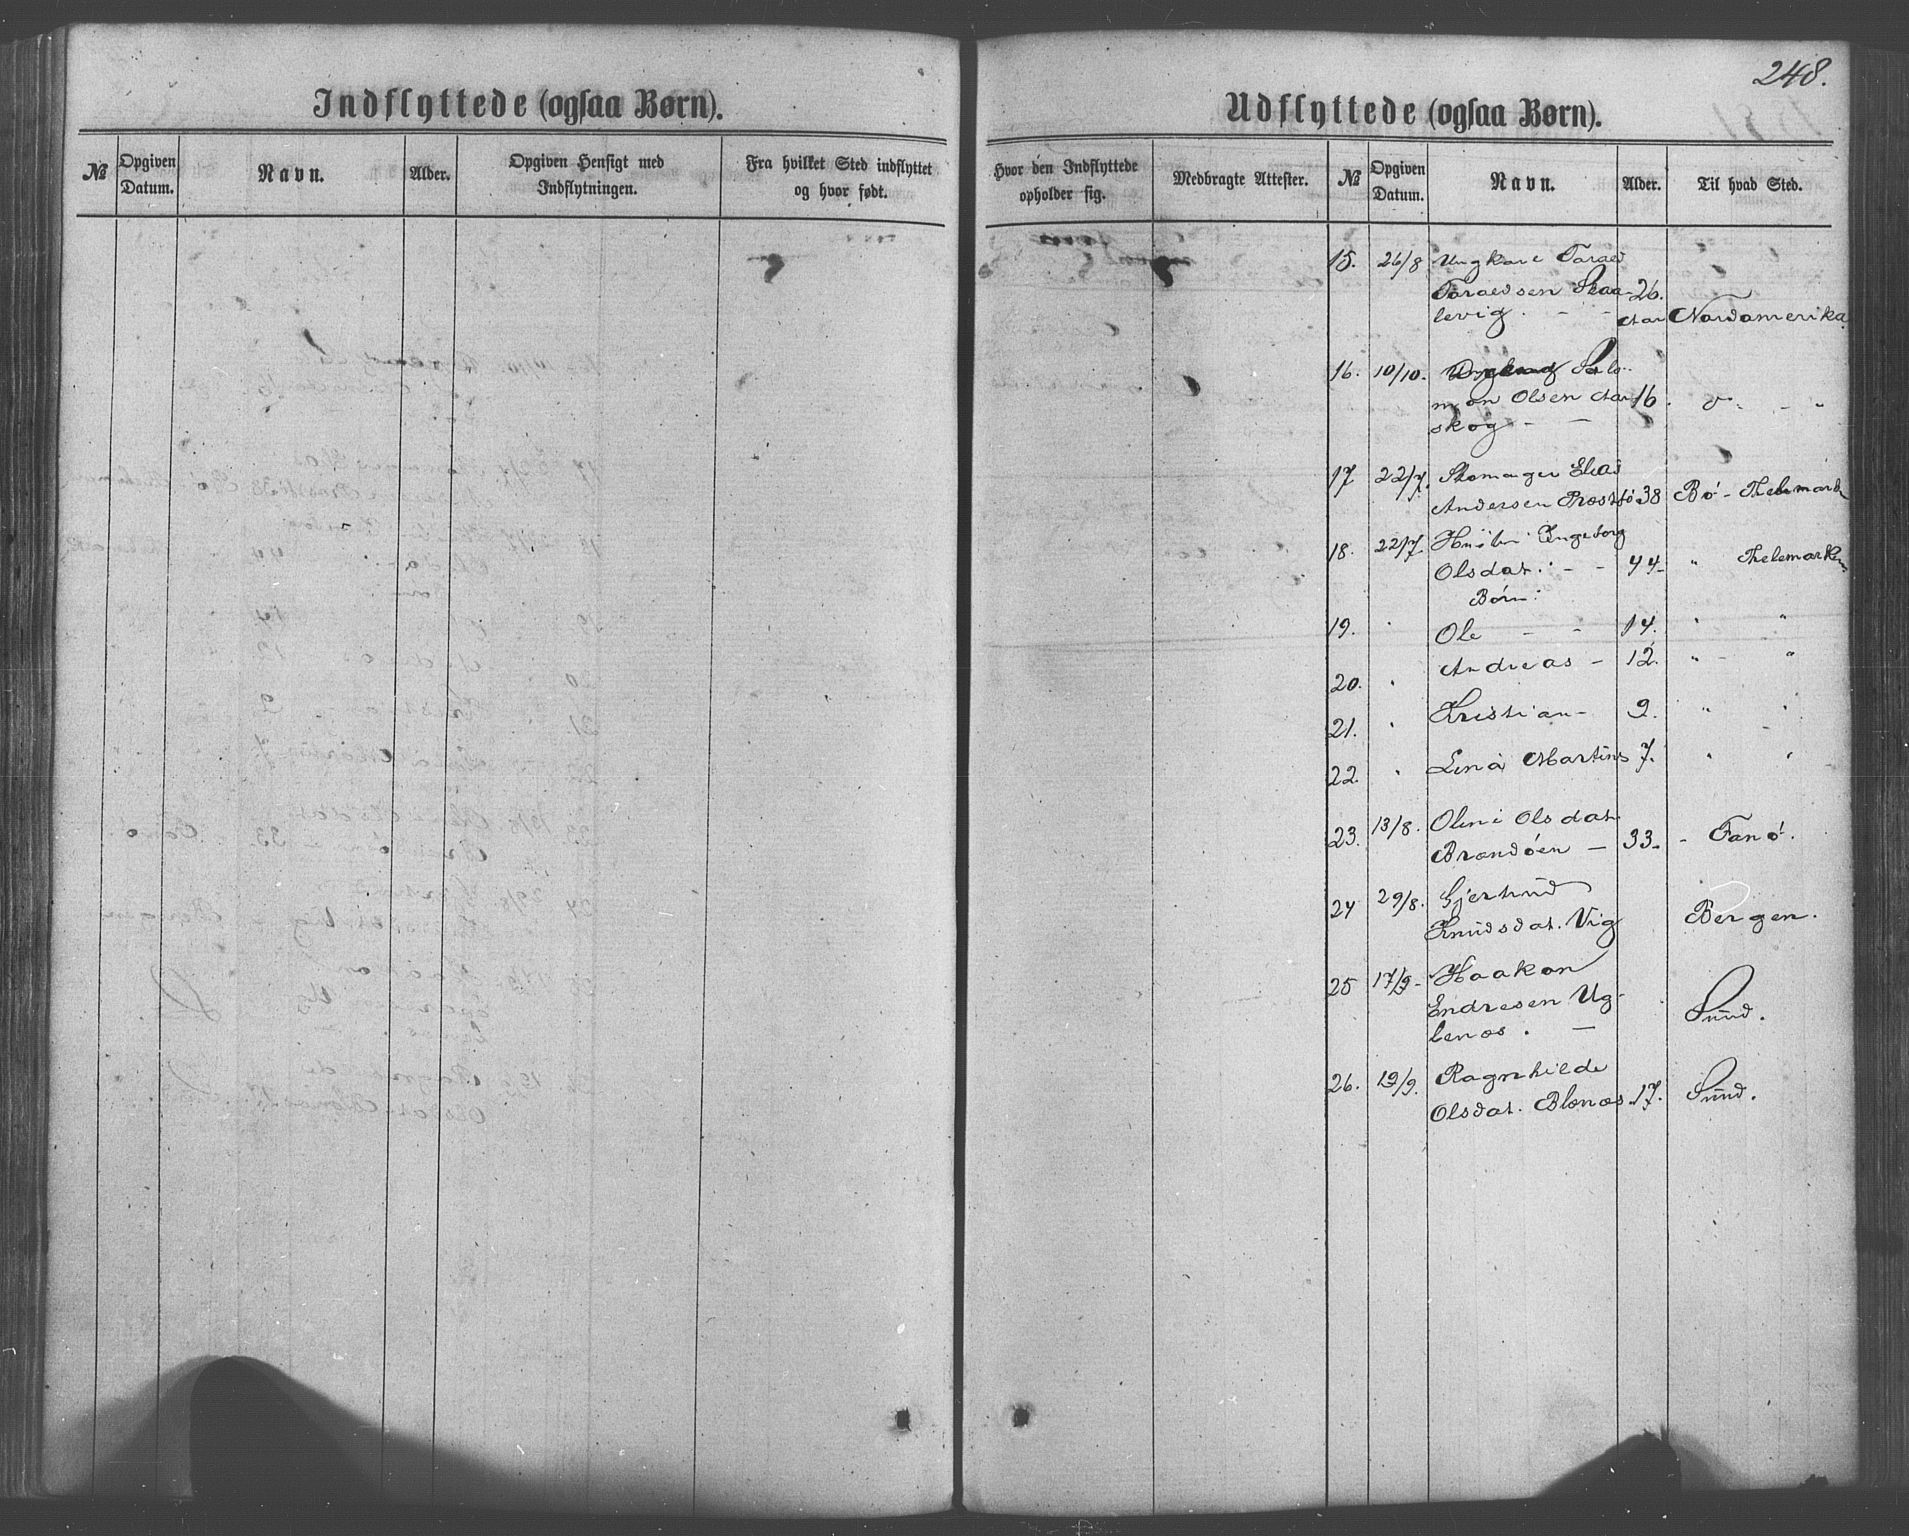 248.
Indflyttede (ogsaa Børn).
Udflyttede (ogsaa Børn).
№ Opgiven Datum. Navn. Alder. Opgiven Hensigt med Indflytningen. Fra hvilket Sted indflyttet og hvor født.
Hvor den Indflyttede opholder sig. Medbragte Attester. № Opgiven Datum. Navn. Alder. Til hvad Sted.
15. 26/8 Ungkarl Tarald
Taraldsen Skaa- 26.
levig. - - Nordamerika
16. 10/10. Salo-
mon Olsen 16.
skog - -
17 22/7. Skomager Elias
Andersen Præstø 38 Bø - Thelemark
18. 22/7. Hustru Ingeborg
Olsdat. - - 44- " Thelemarken
Børn:
19. " Ole - - 14. " "
20. " Andreas - 12. " - "
21. " Kristian - 9. " "
22. " Lina Martine 7. " "
23. 13/8. Oline Olsdat.
Brandøen - 33- - Fanø.
24 29/8. Gjertrud
Knudsdat. Vig Bergen.
25 17/9- Haakon
Endresen Ug-
lenæs. - Sund.
26. 19/9. Ragnhilde
Olsdat. Blænæs. 17. Sund.